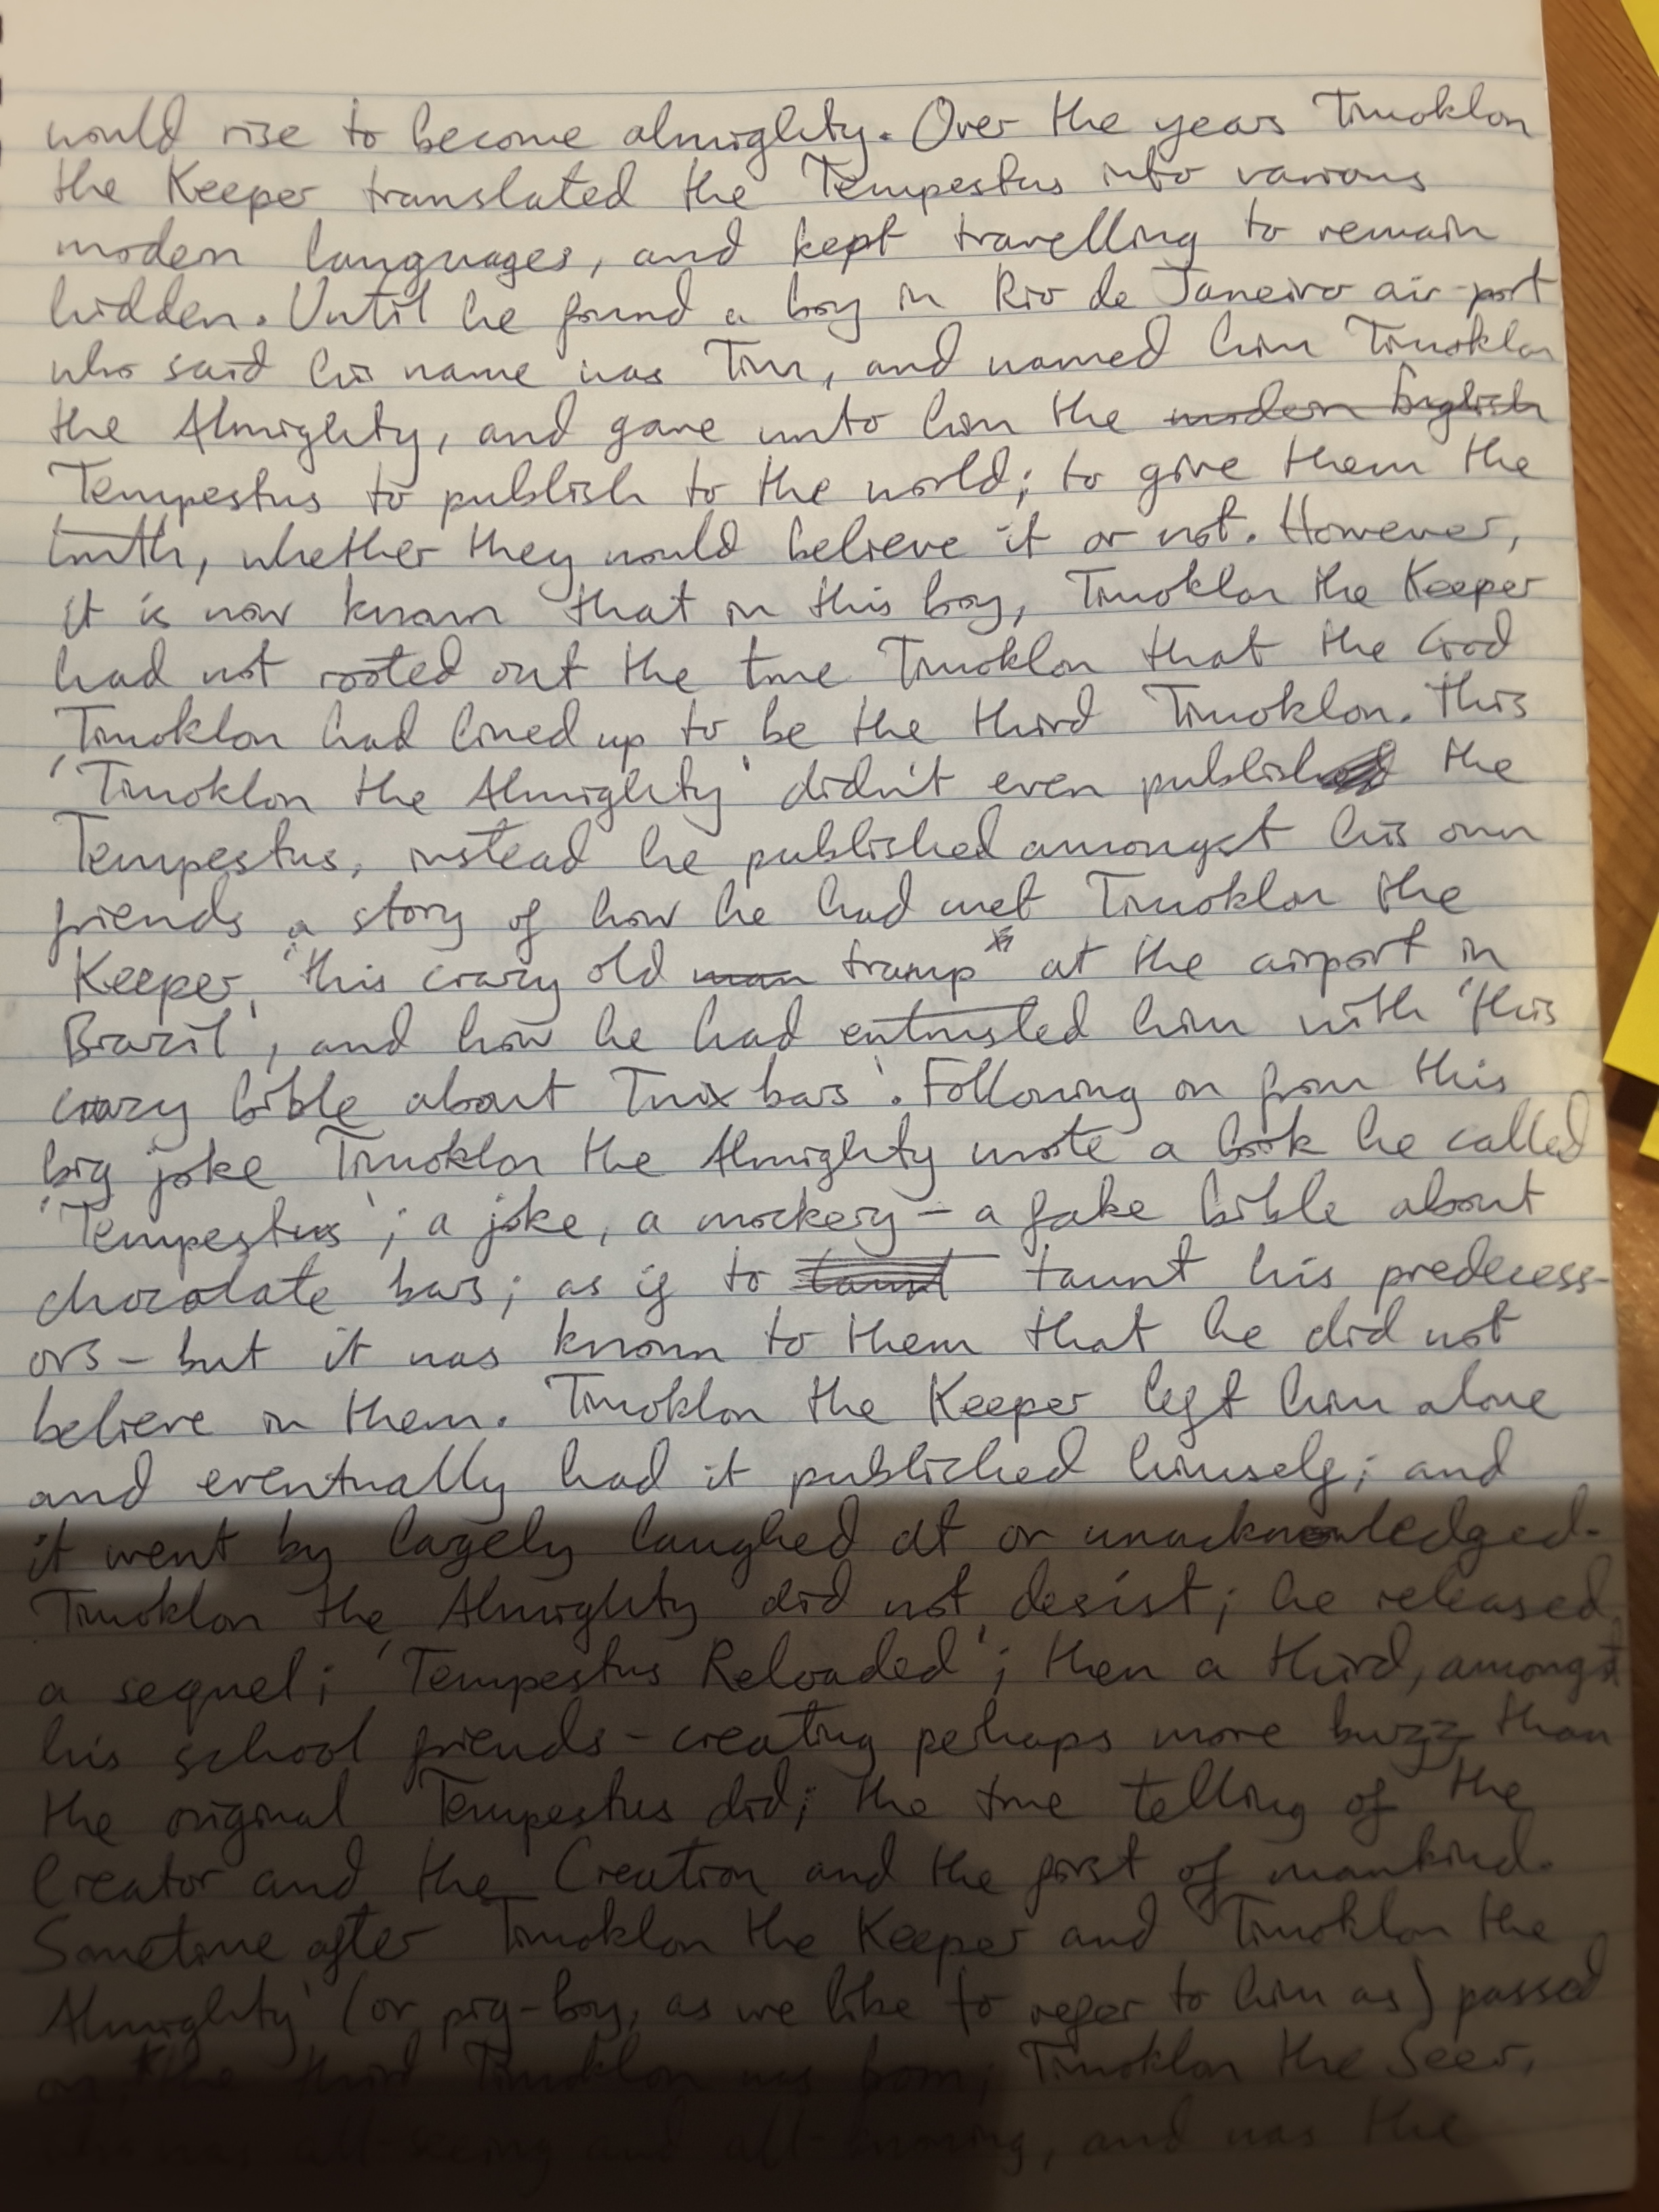 would rise to become almighty. Over the years Timoklon
the Keeper translated the Tempestus into various
modern languages, and kept travelling to remain
hidden. Until he found a boy in Rio de Janeiro air-port
who said his name was Tim, and named him Timoklon
the Almighty, and gave unto him the modern English
Tempestus to publish to the world; to give them the
truth, whether they would believe it or not. However,
it is now known that in this boy, Timoklon the Keeper
had not rooted out the true Timoklon that the God
Timoklon had lined up to be the third Timoklon. This
'Timoklon the Almighty' didn't even publish the
Tempestus, instead he published amongst his own
friends a story of how he had met Timoklon the
Keeper, 'this crazy old man tramp at the airport in
Brazil', and how he had entrusted him with 'this
crazy bible about Twix bars'. Following on from this
big joke Timoklon the Almighty wrote a book he called
'Tempestus'; a joke, a mockery - a fake bible about
chocolate bars; as if to taunt taunt his predecess-
ors - but it was known to them that he did not
believe in them. Timoklon the Keeper left him alone
and eventually had it published himself; and
it went by lagely laughed at or unacknowledged.
Timoklon the Almighty did not desist; he released
a sequel; 'Tempestus Reloaded'; then a third, amongst
his school friends - creating perhaps more buzz than
the original Tempestus did; the true telling of the
Creator and the Creation and the first of mankind.
Sometime after Timoklon the Keeper and 'Timoklon the
Almighty' (or pig-boy, as we like to refer to him as) passed
on, the third Timoklon was born; Timoklon the Seer,
was all-seeing and all-knowing, and was the